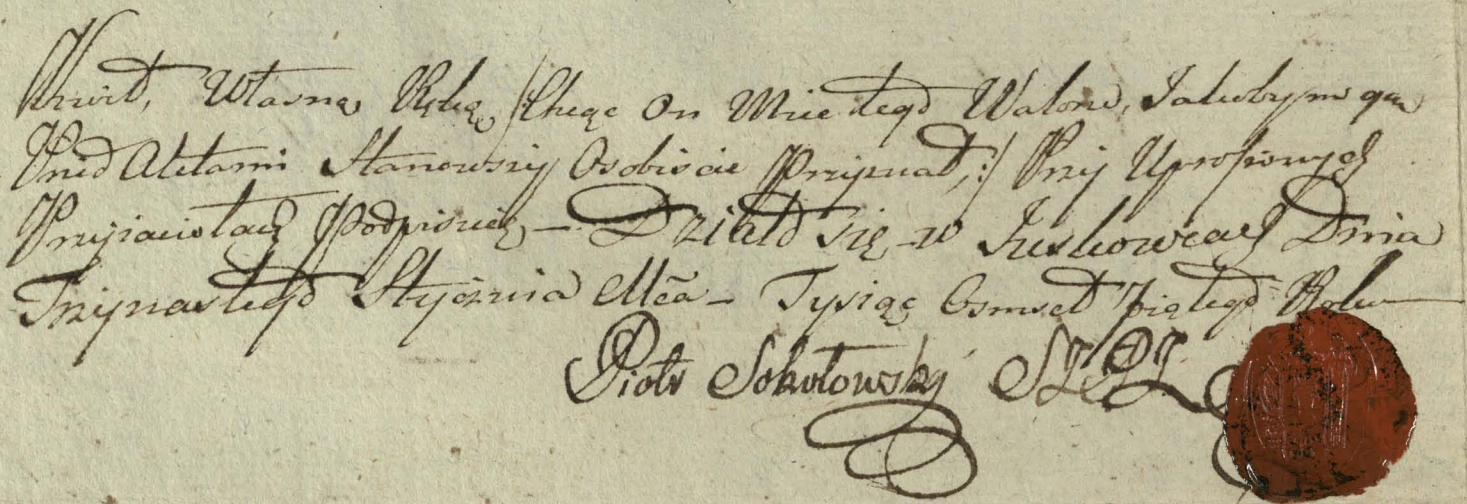 Kwit, Własną Ręką /: Chcąc On Mieć tego Waloru, Jakobym go
Pred Aktami Stanowszy Osobiscie Przyznał, :/ Przy Uproszonych
Przyiaciołach Podpisuię – Działo się w Juskowcach Dnia
Trzynastego Stycznia Mca – Tysiąc Osmset piątego Roku
Piotr Sokołowski